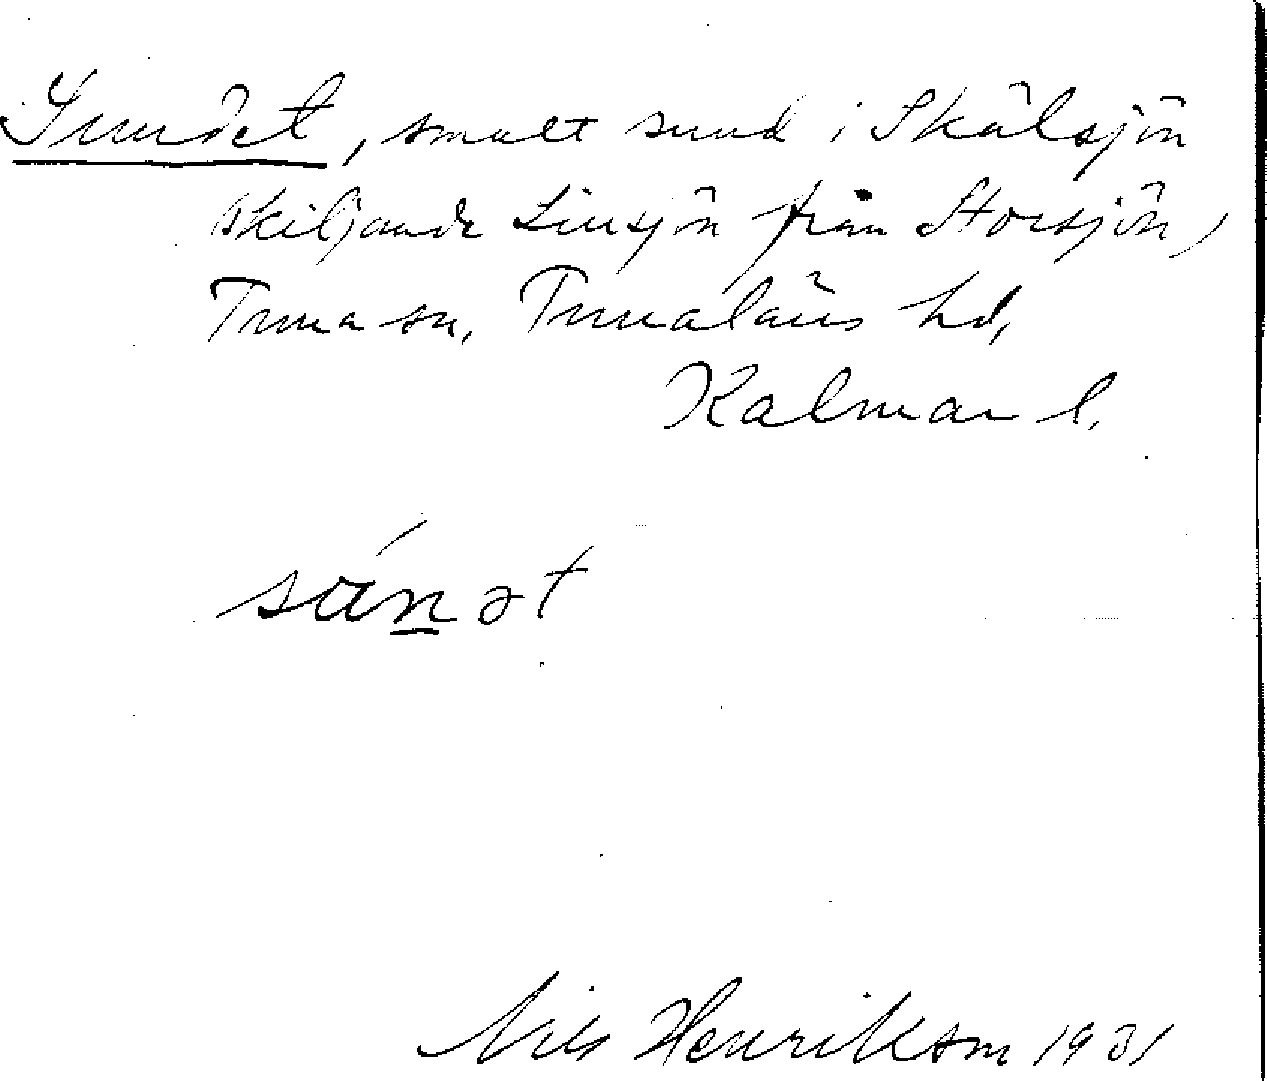 Sundet, smalt sund i Skälsjön
skiljande Linsjön från Storsjön,
Tuna sn, Tunaläns hd,
Kalmar l.
sán̲ət
Nils Henriksson 1931